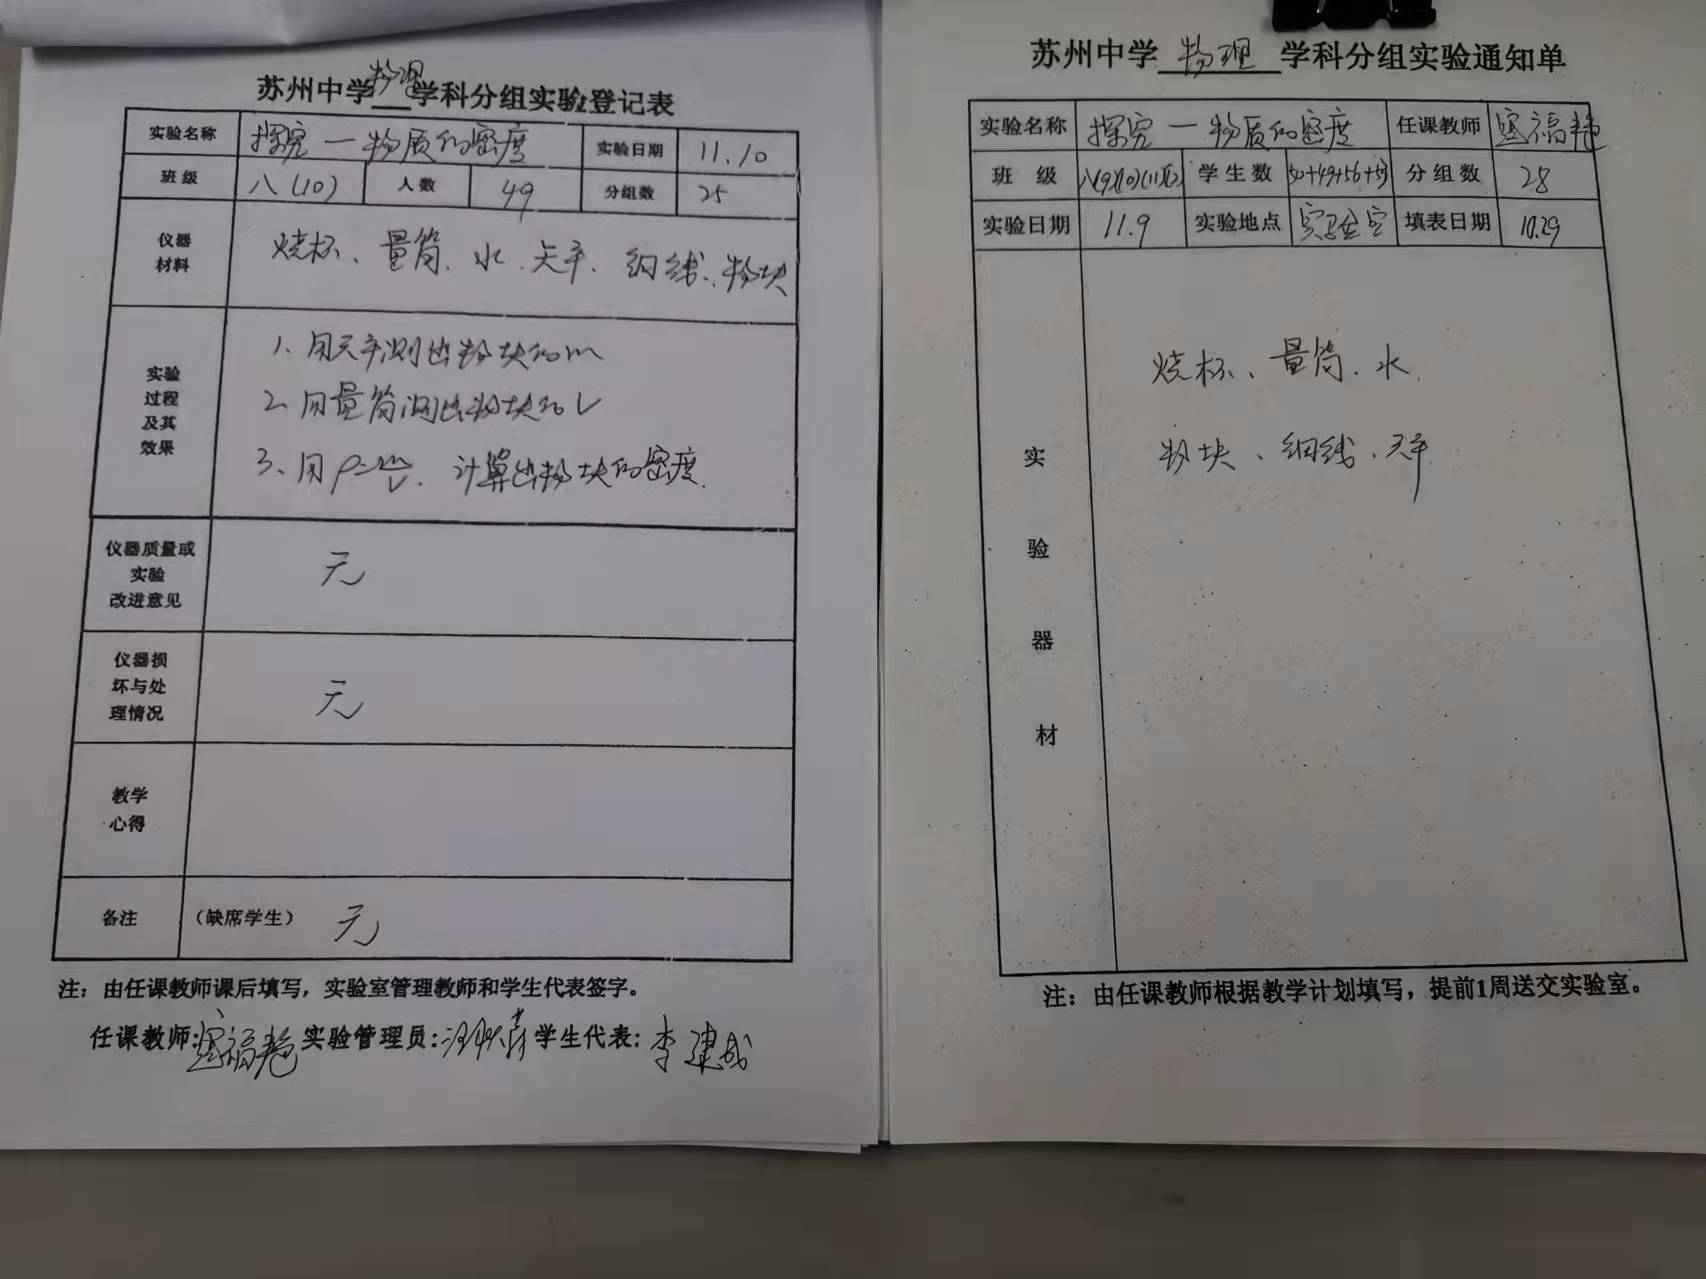 苏州中学物理学科分组实验登记表
实验名称 探究—物质的密度 实验日期 11.10
班级 八(10) 人数 49 分组数 25
仪器材料 烧杯、量筒、水、天平、细线、物块
实验过程及其效果
1、用天平测出物块的m
2、用量筒测出物块的V
3、用ρ=m/V、计算出物块的密度.
仪器质量或实验改进意见 无
仪器损坏与处理情况 无
教学心得
备注 (缺席学生) 无
注：由任课教师课后填写，实验室管理教师和学生代表签字。
任课教师:福艳 实验管理员: 学生代表:李建成
苏州中学 物理 学科分组实验通知单
实验名称 探究—物质的密度 任课教师 福艳
班级 八(9)(10)(11)(12) 学生数 50+49+56+53 分组数 28
实验日期 11.9 实验地点 实验室 填表日期 10.29
实验器材
烧杯、量筒、水.
物块、细线、天平
注：由任课教师根据教学计划填写，提前1周送交实验室。